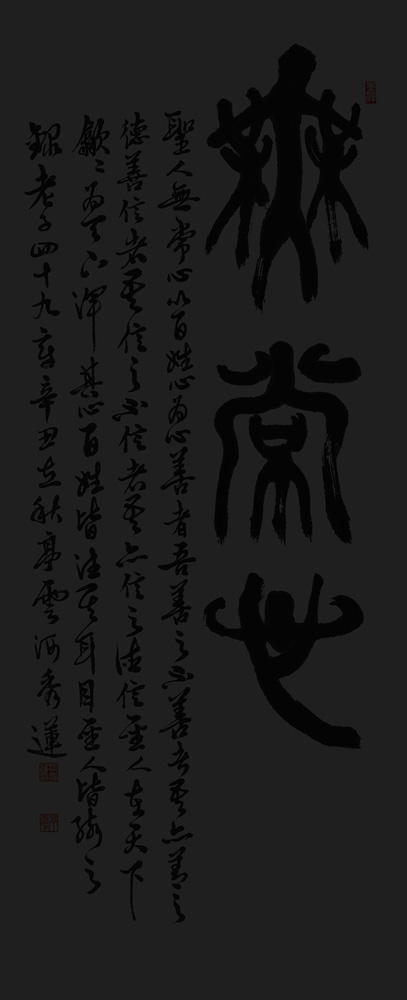 無常心
聖人無常心以百姓心為心善者吾善之不善者吾亦善之
德善信者吾信之不信者吾亦信之德信聖人在天下
歙〻為天下渾其心百姓皆注其耳目聖人皆孩之
錄老子四十九章辛丑立秋亭雲河秀蓮